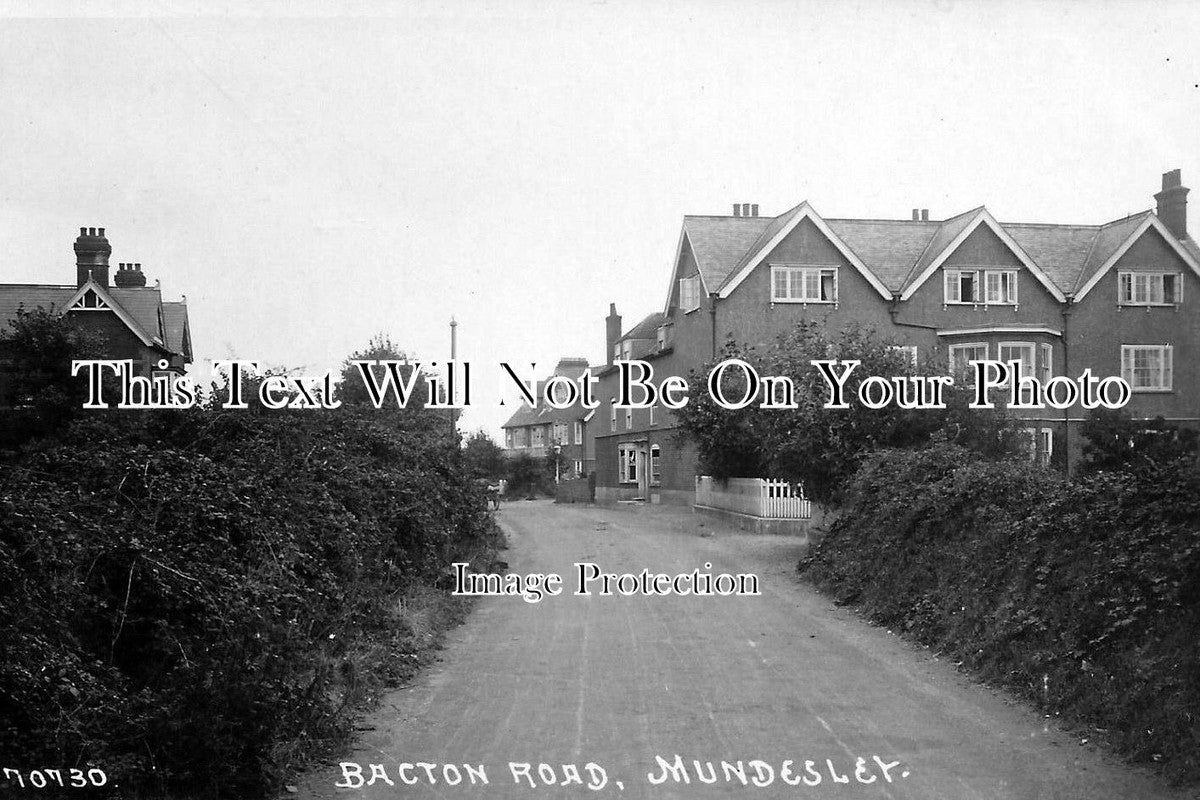 This Text Will Not Be On Your Photo
Image Protection
70730.
BACTON ROAD, MUNDESLEY.